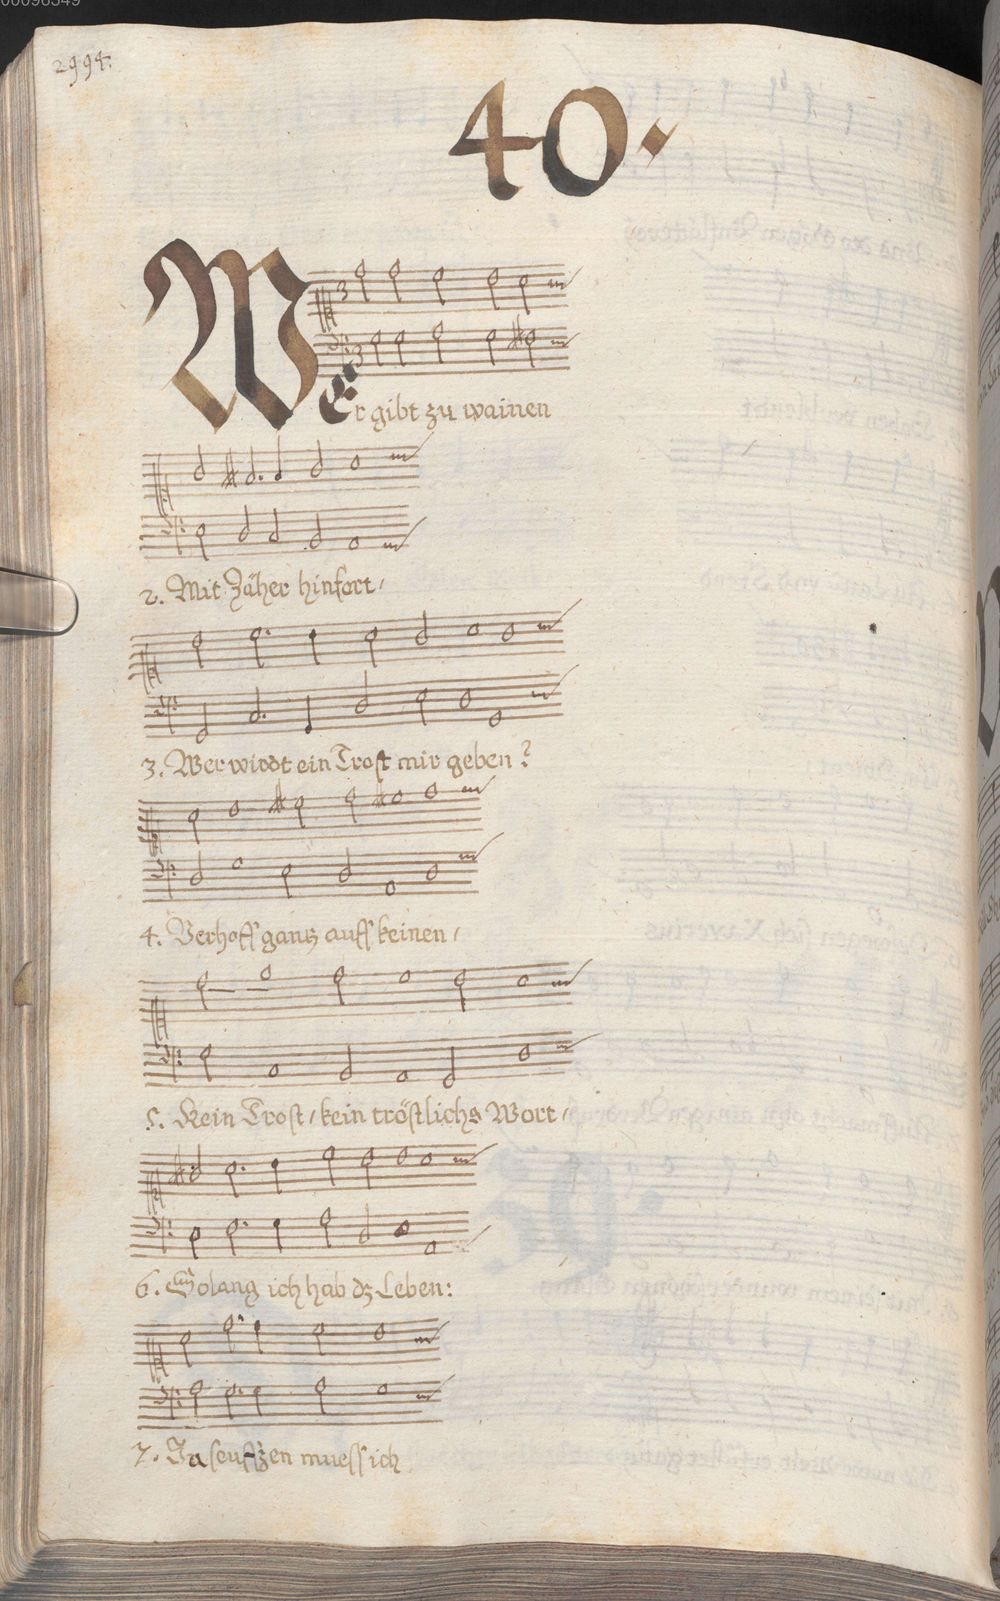 00096349
2994.
40.
Wer gibt zu wainen
2. Mit Zäher hinfort,
3. Wer wirdt ein Trost mir geben?
4. Verhoff gantz auff keinen,
5. Kein Trost, kein tröstlichs Wort,
6. Solang ich hab dz Leben:
7. Ja seufftzen muess ich